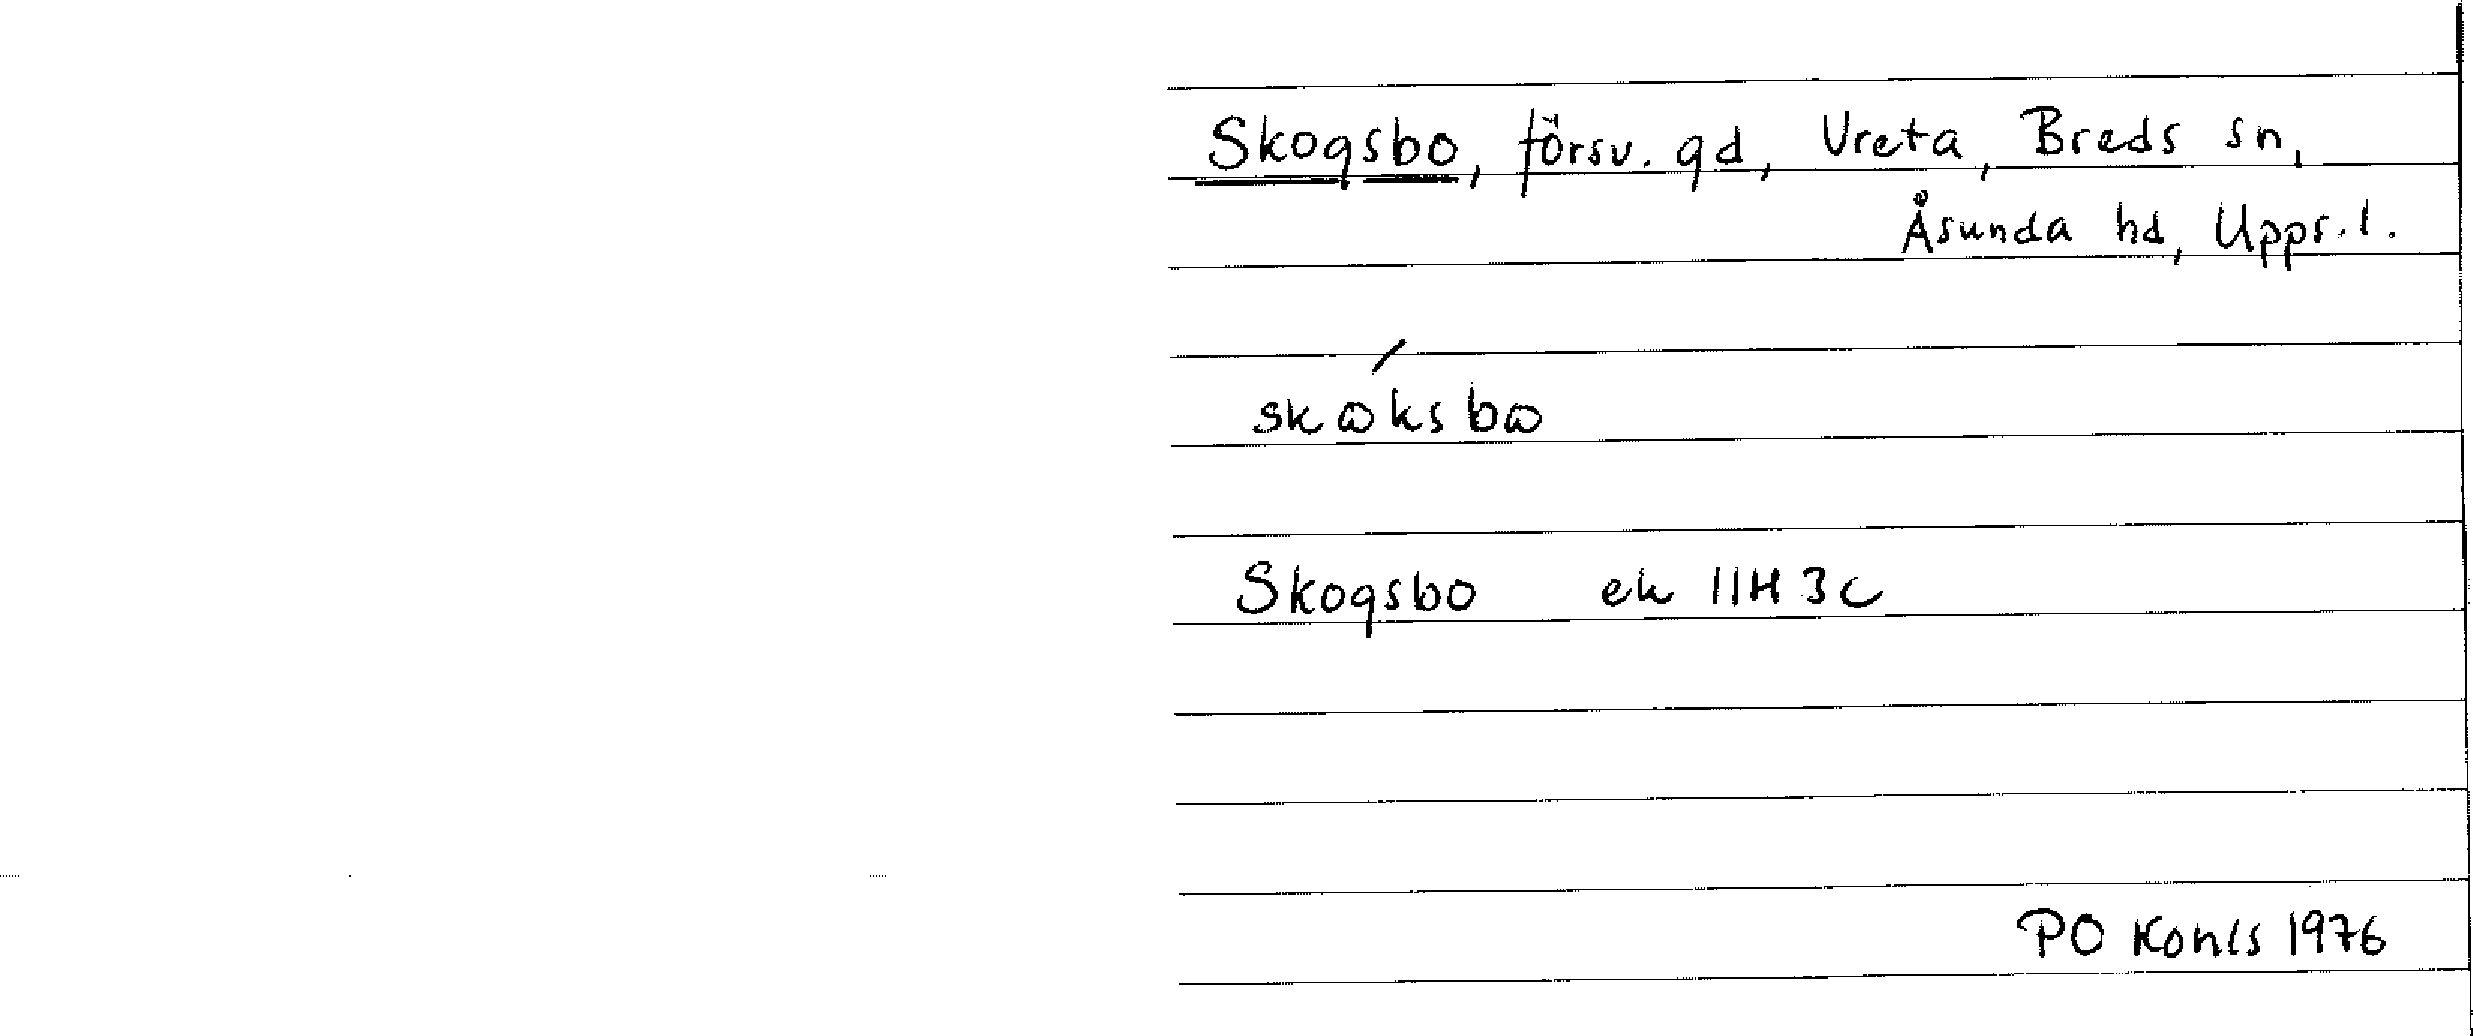 Skogsbo, försv. gd, Vreta, Breds sn,
Åsunda hd, Upps. l.
skѡ́ksbѡ
Skogsbo ek 11H 3c
PO 1976